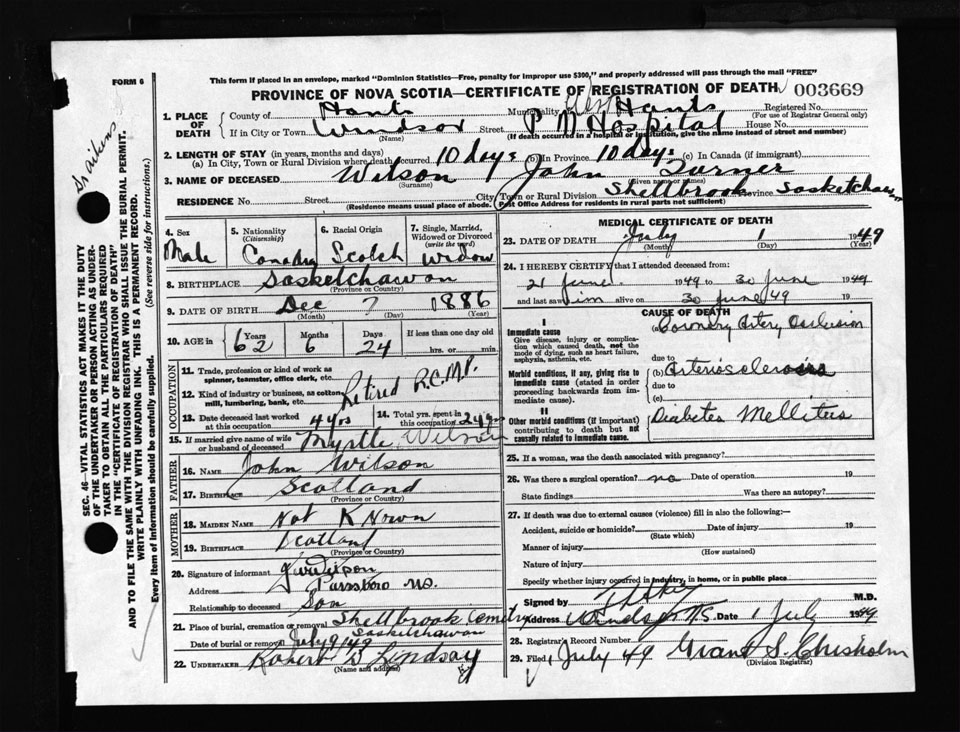 FORM 6
This form if placed in an envelope, marked "Dominion Statistics—Free, penalty for improper use $300," and properly addressed will pass through the mail "FREE"
PROVINCE OF NOVA SCOTIA—CERTIFICATE OF REGISTRATION OF DEATH
003669
1. PLACE OF DEATH
County of Hants Municipality West Hants Registered No.
(For use of Registrar General only)
If in City or Town Windsor Street P M Hospital House No.
(Name) (If death occurred in a hospital or institution, give the name instead of street and number)
2. LENGTH OF STAY (in years, months and days)
(a) In City, Town or Rural Division where death occurred 10 days (b) In Province 10 days (c) In Canada (if immigrant)
3. NAME OF DECEASED Wilson John Turner
(Surname) (Given names)
RESIDENCE No. Street City, Town or Rural Division Shellbrook Province Saskatchawan
(Residence means usual place of abode. Post Office Address for residents in rural parts not sufficient)
4. Sex
Male
5. Nationality (Citizenship)
6. Racial Origin
Scotch
7. Single, Married, Widowed or Divorced (write the word)
Widow
8. BIRTHPLACE Saskelchawon
(Province or Country)
9. DATE OF BIRTH Dec 7 1886
(Month) (Day) (Year)
10. AGE in Years Months Days If less than one day old
62 6 24 hrs. or min.
OCCUPATION
11. Trade, profession or kind of work as spinner, teamster, office clerk, etc.
12. Kind of industry or business, as cotton mill, lumbering, bank, etc.
Retired R.C.M.P.
13. Date deceased last worked at this occupation 4 yrs
14. Total yrs. spent in this occupation
15. If married give name of wife or husband of deceased Myrtle Wilson
FATHER
16. NAME John Wilson
17. BIRTHPLACE Scotland
(Province or Country)
MOTHER
18. MAIDEN NAME Not Known
19. BIRTHPLACE Scotland
(Province or Country)
20. Signature of informant Wilson
Address Parrsboro NS.
Relationship to deceased Son
21. Place of burial, cremation or removal Shellbrook Cemetry
Saskelchawan
Date of burial or removal July 9/49
22. UNDERTAKER Robert D Lindsay
(Name and address)
MEDICAL CERTIFICATE OF DEATH
23. DATE OF DEATH July 1 1949
(Month) (Day) (Year)
24. I HEREBY CERTIFY that I attended deceased from:
21 June 1949 to 30 June 1949
and last saw him alive on 30 June 49 19
CAUSE OF DEATH
I
Immediate cause
Give disease, injury or complication which caused death, not the mode of dying, such as heart failure, asphyxia, asthenia, etc.
(a) Coronary Artery Occlusion
due to
Morbid conditions, if any, giving rise to immediate cause (stated in order proceeding backwards from immediate cause).
(b) Arteriosclerosis
due to
(c)
II
Other morbid conditions (if important) contributing to death but not causally related to immediate cause.
Diabetes Mellitus
25. If a woman, was the death associated with pregnancy?
26. Was there a surgical operation? no Date of operation 19
State findings Was there an autopsy?
27. If death was due to external causes (violence) fill in also the following:—
Accident, suicide or homicide? Date of injury 19
(State which)
Manner of injury
(How sustained)
Nature of injury
Specify whether injury occurred in industry, in home, or in public place
Signed by M.D.
Address Windsor N.S. Date 1 July 1949
28. Registrar's Record Number
29. Filed 1 July 49 Grant S. Chisholm
(Division Registrar)
Dr Aikens
SEC. 46—VITAL STATISTICS ACT MAKES IT THE DUTY OF THE UNDERTAKER OR PERSON ACTING AS UNDERTAKER TO OBTAIN ALL THE PARTICULARS REQUIRED IN THE "CERTIFICATE OF REGISTRATION OF DEATH" AND TO FILE THE SAME WITH THE DIVISION REGISTRAR WHO SHALL ISSUE THE BURIAL PERMIT.
WRITE PLAINLY WITH UNFADING INK. THIS IS A PERMANENT RECORD.
Every item of information should be carefully supplied. (See reverse side for instructions.)